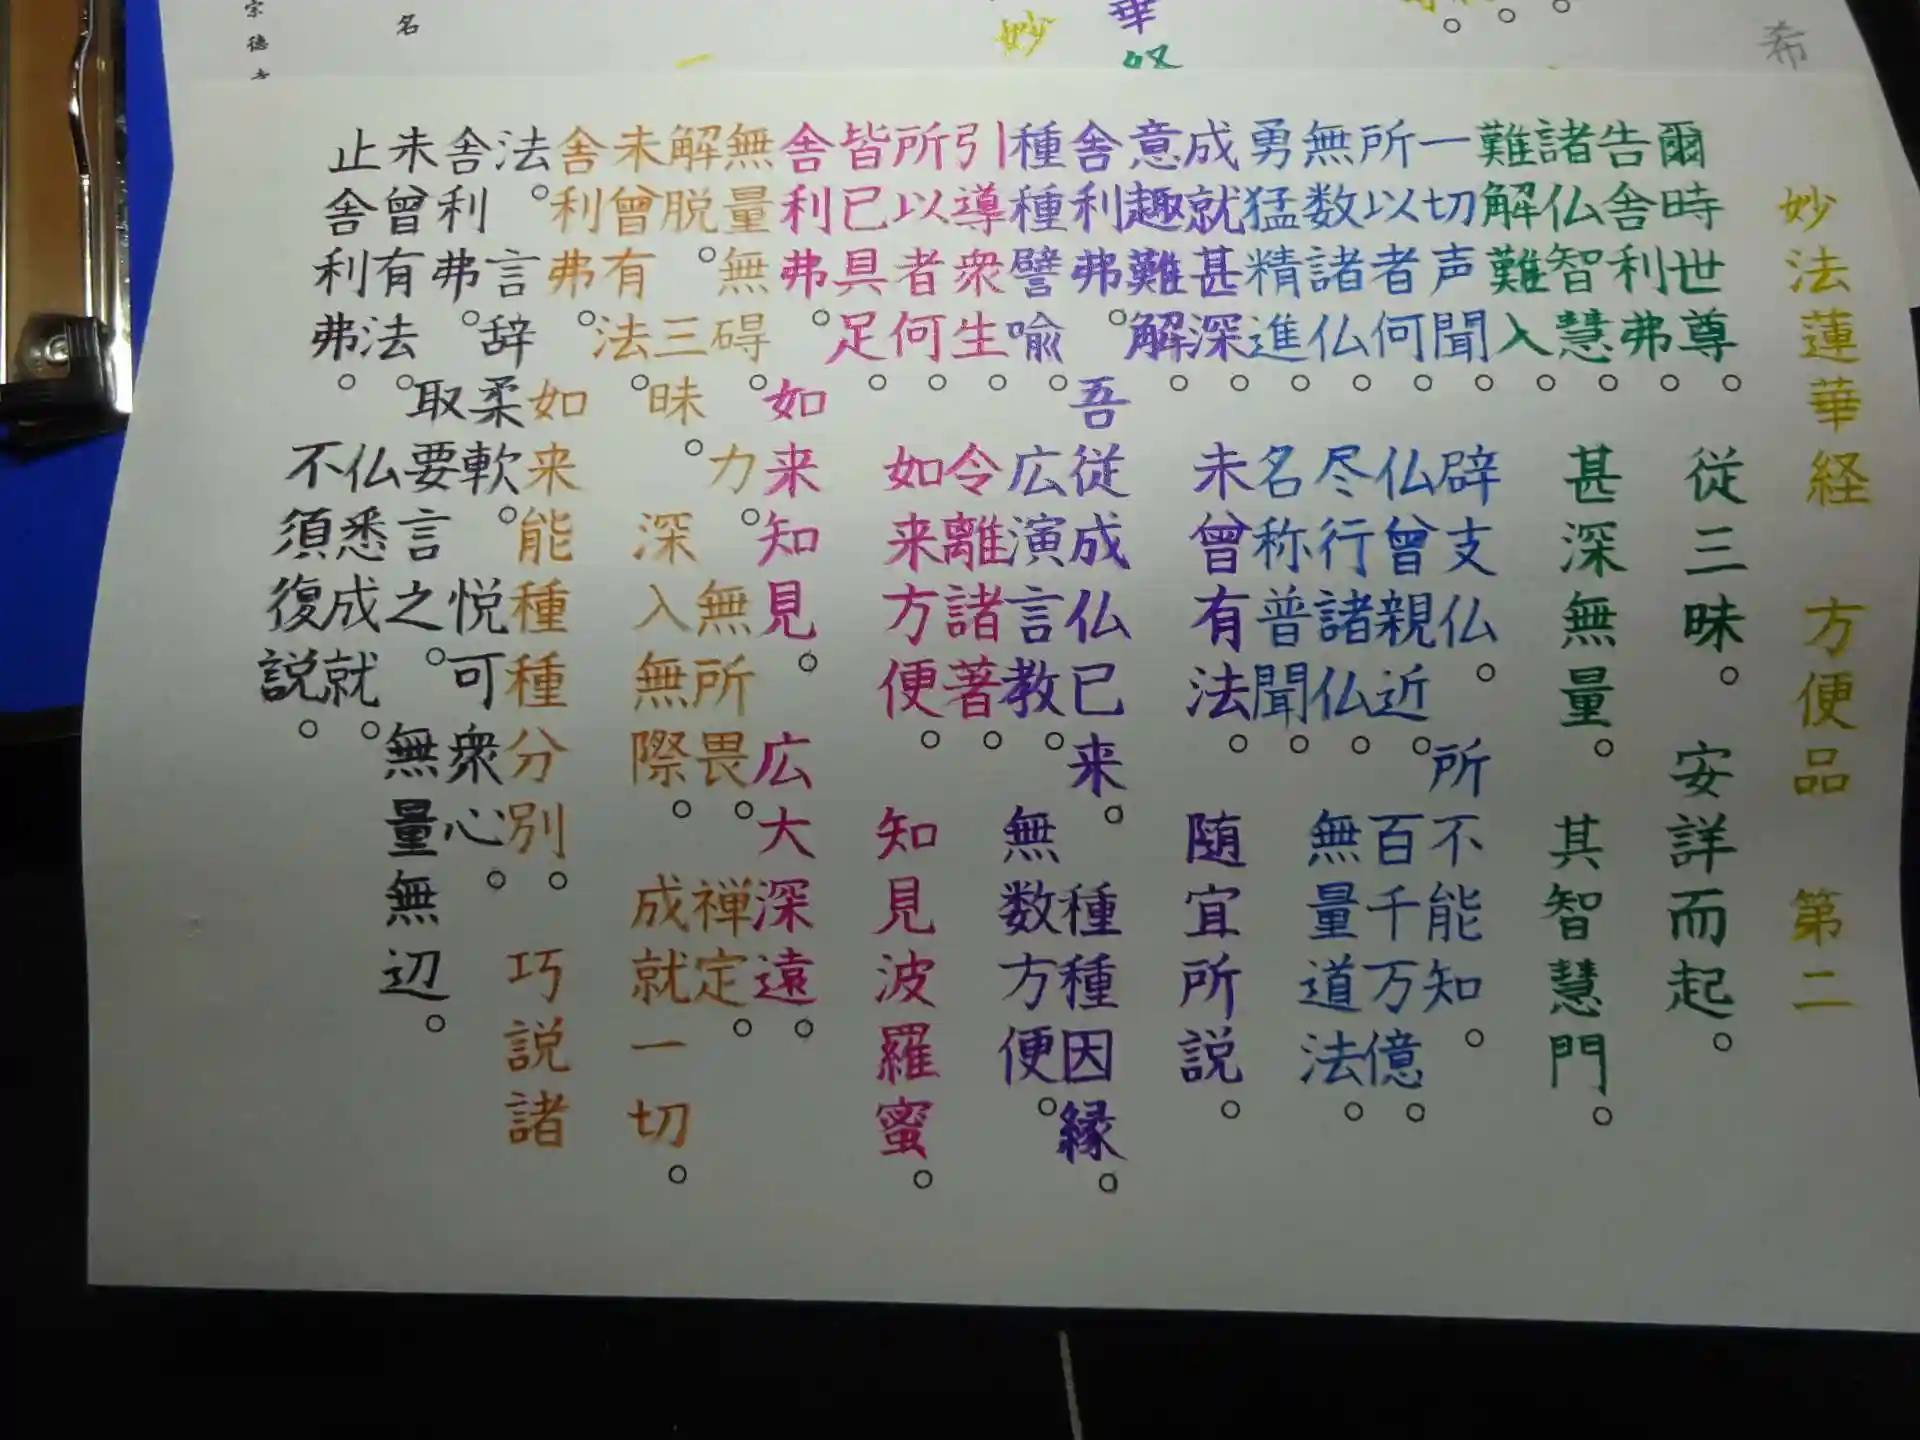 希
華
妙
一
名
宗徳
妙法蓮華経　方便品　第二
爾時世尊。従三昧。安詳而起。
告舎利弗。
諸仏智慧。甚深無量。其智慧門。
難解難入。
一切声聞。辟支仏。所不能知。
所以者何。仏曾親近。百千万億。
無数諸仏。尽行諸仏。無量道法。
勇猛精進。名称普聞。
成就甚深。未曾有法。随宜所説。
意趣難解。
舎利弗。吾従成仏已来。種種因縁。
種種譬喩。広演言教。無数方便。
引導衆生。令離諸著。
所以者何。如来方便。知見波羅蜜。
皆已具足。
舎利弗。如来知見。広大深遠。
無量無碍。力。無所畏。禅定。
解脱。三昧。深入無際。成就一切。
未曾有法。
舎利弗。如来能種種分別。巧説諸
法。言辞柔軟。悦可衆心。
舎利弗。取要言之。無量無辺。
未曾有法。仏悉成就。
止舎利弗。不須復説。